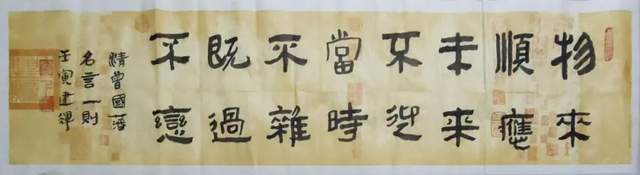 物來
順應
未来
不迎
當時
不雜
既過
不戀
清曾國藩
名言一則
壬寅建鋒